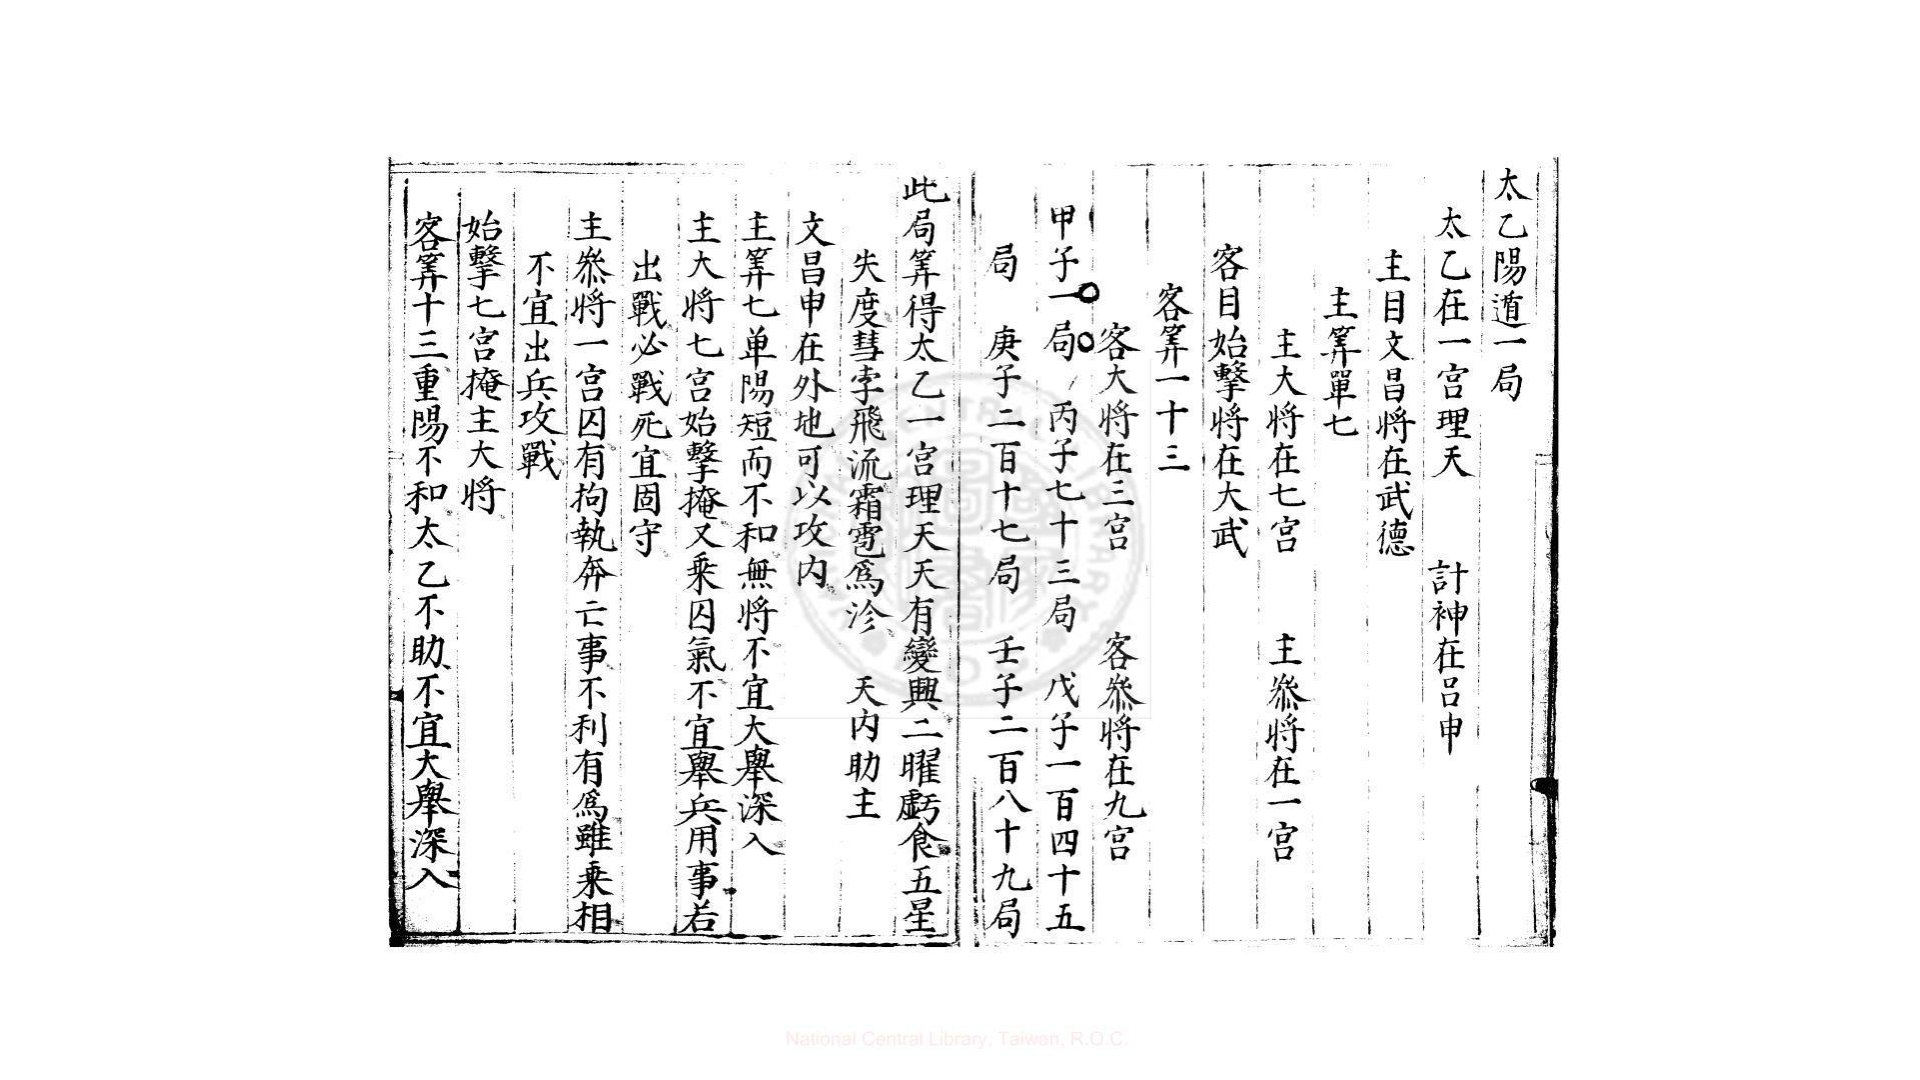 太乙陽遁一局
太乙在一宮理天　計神在呂申
主目文昌將在武德
主筭單七
主大將在七宮　主叅將在一宮
客目始擊將在大武
客筭一十三
客大將在三宮　客叅將在九宮
甲子一局　丙子七十三局　戊子一百四十五
局　庚子二百十七局　壬子二百八十九局
此局筭得太乙一宮理天天有變興二曜虧食五星
失度彗孛飛流霜雹爲沴　天內助主
文昌申在外地可以攻內
主筭七单陽短而不和無將不宜大舉深入
主大將七宮始擊掩又乘囚氣不宜舉兵用事若
出戰必戰死宜固守
主叅將一宮囚有拘執奔亡事不利有爲雖乘相
不宜出兵攻戰
始擊七宮掩主大將
客筭十三重陽不和太乙不助不宜大舉深入
National Central Library, Taiwan, R.O.C.